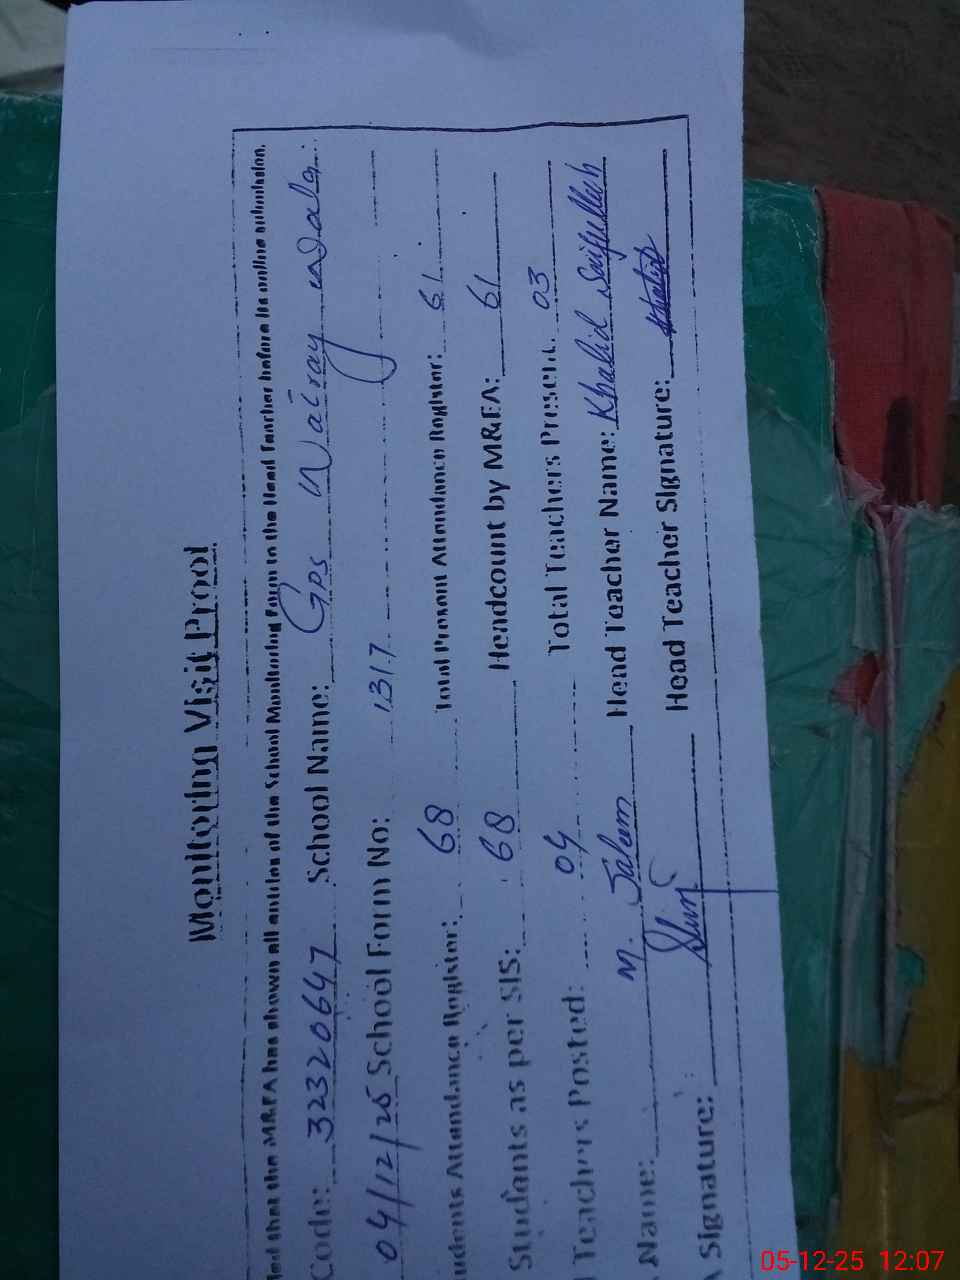 Monitoring Visit Proof
that the M&EA has shown all entries of the School Monitoring Form to the Head Teacher before its online submission.
Code: 32320647 School Name: Gps Watray wala
04/12/25 School Form No: 1317
udents Attendance Register: 68 Total Present Attendance Register: 61
Students as per SIS: 68 Headcount by M&EA: 61
Teachers Posted: 04 Total Teachers Present: 03
Name: M. Saleem Head Teacher Name: Khalid Saifullah
Signature: Head Teacher Signature: Khalid
05-12-25 12:07